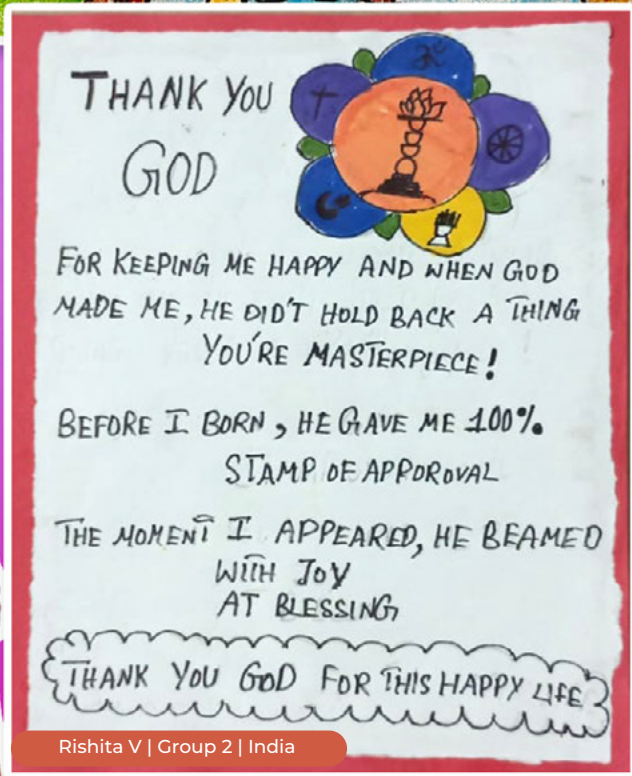 THANK YOU
GOD
FOR KEEPING ME HAPPY AND WHEN GOD
MADE ME, HE DID'T HOLD BACK A THING
YOU'RE MASTERPIECE!
BEFORE I BORN, HE GAVE ME 100%.
STAMP OF APPOROVAL
THE MOMENT I APPEARED, HE BEAMED
WITH JOY
AT BLESSING
THANK YOU GOD FOR THIS HAPPY LIFE
Rishita V | Group 2 | India